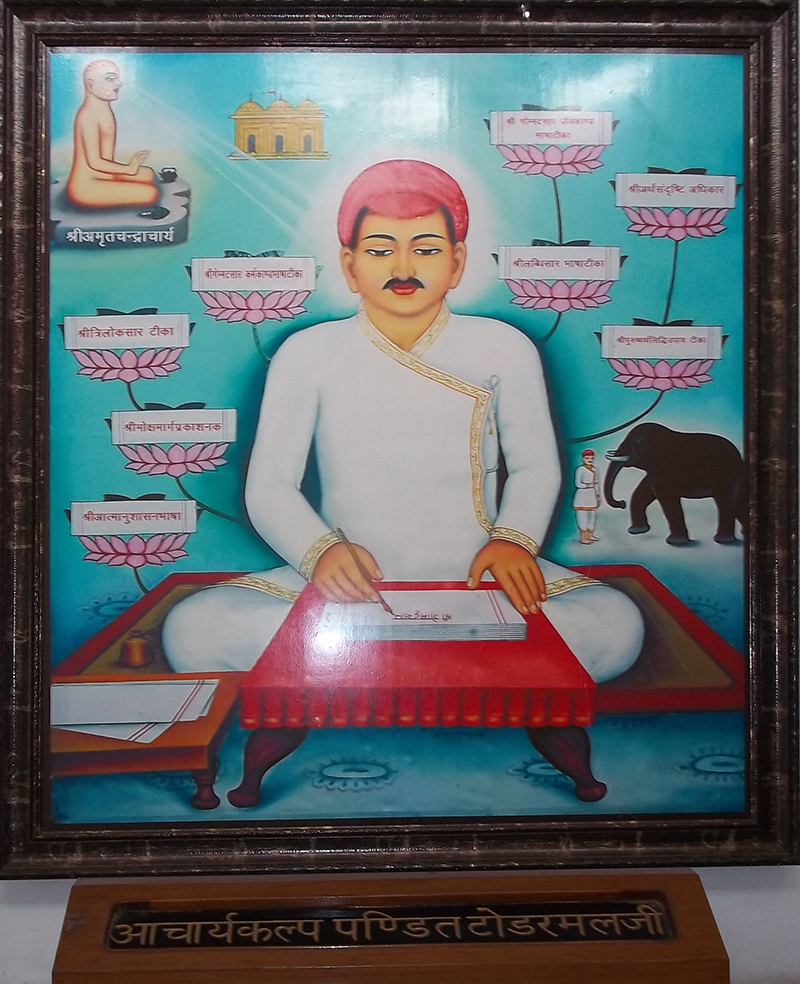 श्री गोम्मटसार जीवकाण्ड
भाषाटीका
श्रीअर्थसंदृष्टि अधिकार
श्रीअमृतचन्द्राचार्य
श्रीगोम्मटसार कर्मकाण्डभाषाटीका
श्रीलब्धिसार भाषाटीका
श्रीत्रिलोकसार टीका
श्रीपुरुषार्थसिद्धिउपाय टीका
श्रीमोक्षमार्गप्रकाशनक
श्रीआत्मानुशासनभाषा
आचार्यकल्प पण्डित टोडरमलजी